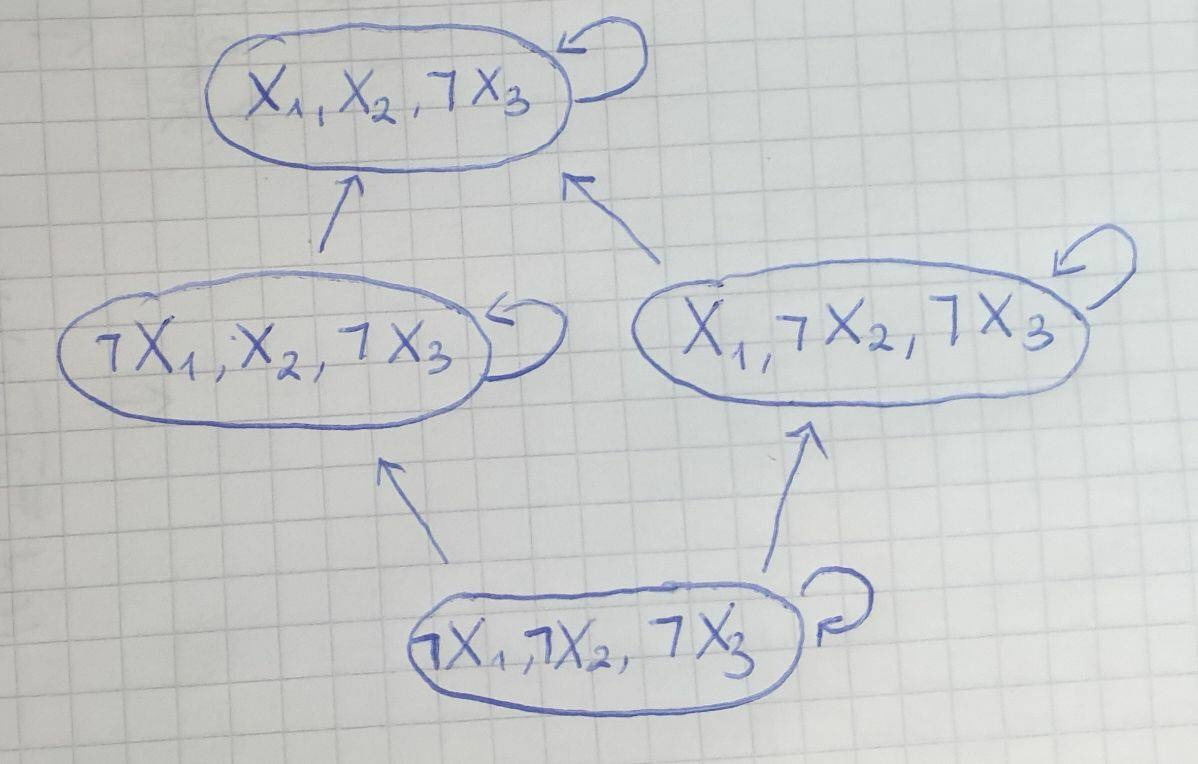 X₁, X₂, ¬X₃
¬X₁, X₂, ¬X₃
X₁, ¬X₂, ¬X₃
¬X₁, ¬X₂, ¬X₃